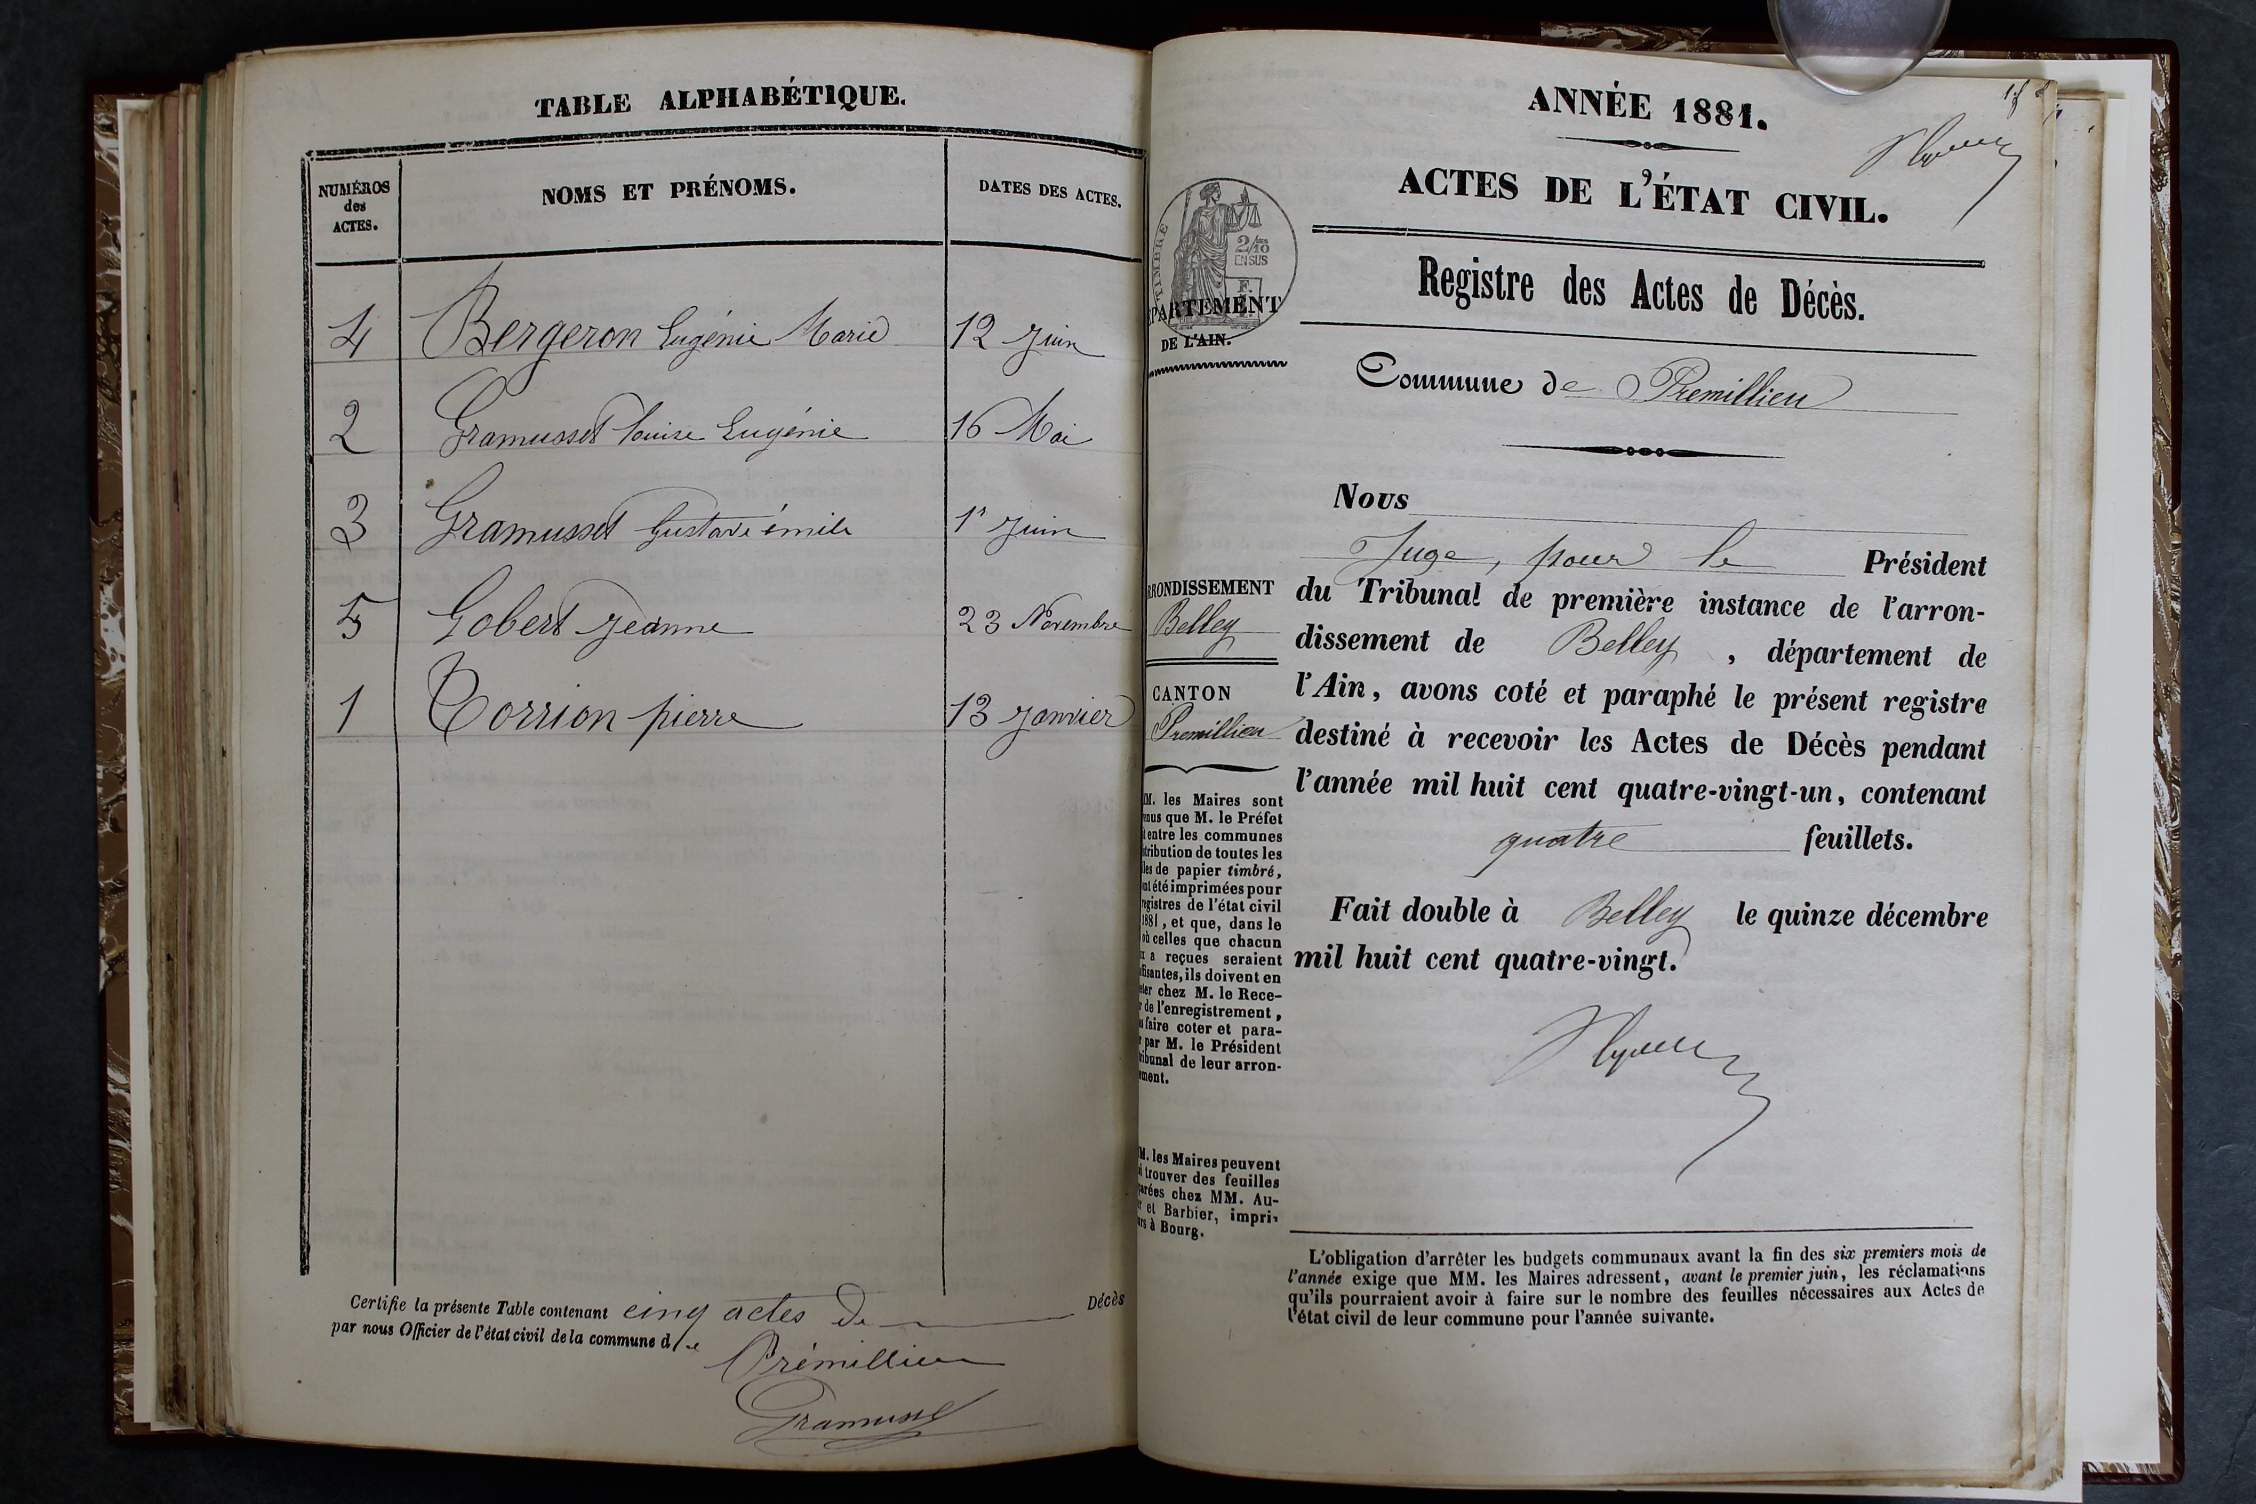 TABLE ALPHABÉTIQUE.
NUMÉROS
des
ACTES.
NOMS ET PRÉNOMS.
DATES DES ACTES.
4 Bergeron Eugénie Marie 12 juin
2 Gramusset Louise Eugénie 16 Mai
3 Gramusset Gustave émile 1r juin
5 Gobert jeanne 23 Novembre
1 Corrion pierre 13 janvier
Certifie la présente Table contenant cinq actes de Décès
par nous Officier de l'état civil de la commune de
Prémillieu
Gramusset
ANNÉE 1881.
1f
ACTES DE L'ÉTAT CIVIL.
TIMBRE
2/10
EN SUS
PARTEMENT
DE L'AIN.
Registre des Actes de Décès.
Commune de Premillieu
Nous
Juge, pour le Président
du Tribunal de première instance de l'arron-
dissement de Belley, département de
l'Ain, avons coté et paraphé le présent registre
destiné à recevoir les Actes de Décès pendant
l'année mil huit cent quatre-vingt-un, contenant
quatre feuillets.
Fait double à Belley le quinze décembre
mil huit cent quatre-vingt.
RRONDISSEMENT
Belley
CANTON
Premillieu
M. les Maires sont
enus que M. le Préfet
it entre les communes
stribution de toutes les
lles de papier timbré,
nt été imprimées pour
registres de l'état civil
1881, et que, dans le
où celles que chacun
ux a reçues seraient
ffisantes, ils doivent en
eter chez M. le Rece-
r de l'enregistrement,
faire coter et para-
r par M. le Président
ribunal de leur arron-
ement.
M. les Maires peuvent
i trouver des feuilles
parées chez MM. Au-
er et Barbier, impri-
urs à Bourg.
L'obligation d'arrêter les budgets communaux avant la fin des six premiers mois de
l'année exige que MM. les Maires adressent, avant le premier juin, les réclamations
qu'ils pourraient avoir à faire sur le nombre des feuilles nécessaires aux Actes de
l'état civil de leur commune pour l'année suivante.